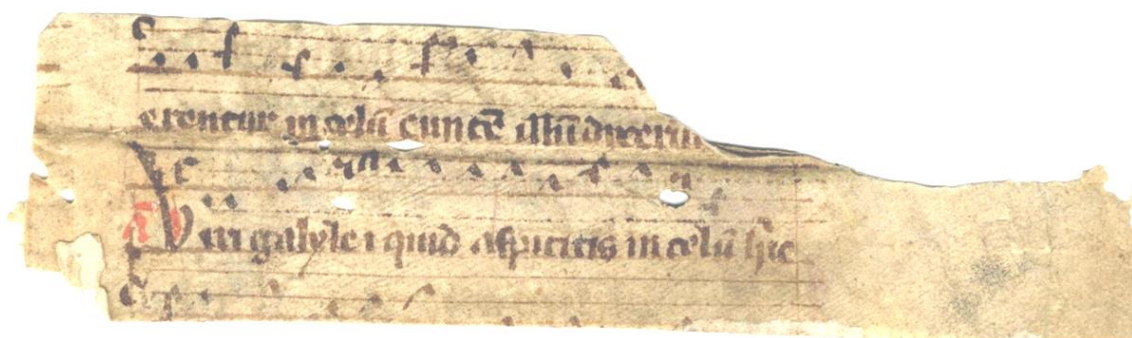 erentur in celū euntē illū dixerūt
A Viri galylei quid aspicitis in celū hic